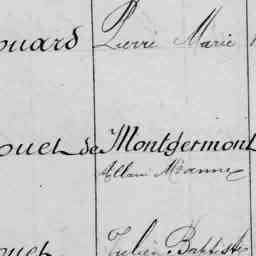 ouard Pierre Marie
ouet de Montgermont
Allain Marie
ouet Julien Baptiste